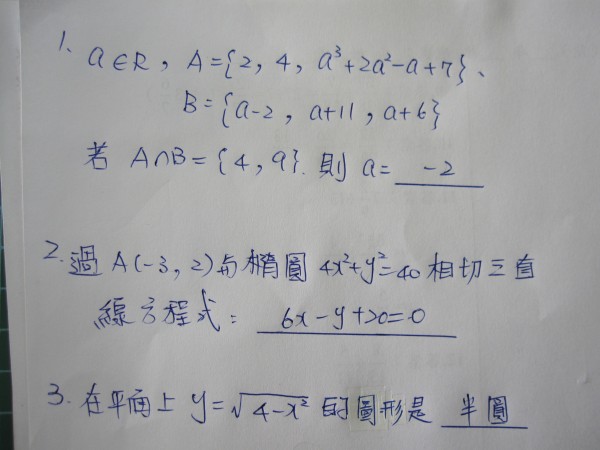 1. a∈R, A={2, 4, a³+2a²-a+7}、
B={a-2, a+11, a+6}
若 A∩B={4, 9}. 則 a= -2
2. 過 A(-3, 2) 與橢圓 4x²+y²=40 相切之直
線方程式: 6x-y+20=0
3. 在平面上 y=√4-x² 的圖形是 半圓